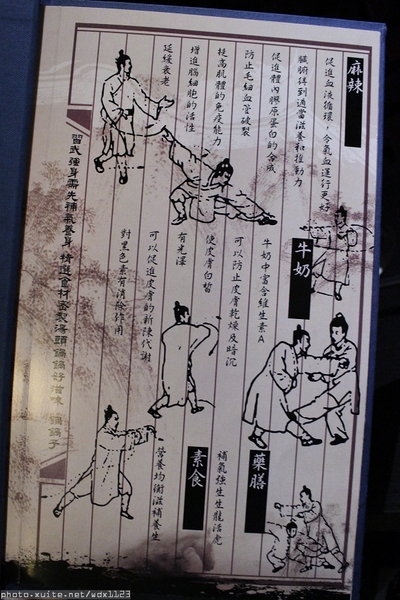 麻辣
促進血液循環，令氣血運行更好
臟腑得到適當滋養和推動力
促進體內膠原蛋白的合成
防止毛細血管破裂
提高肌體的免疫能力
增進腦細胞的活性
延緩衰老
牛奶
牛奶中富含維生素A
可以防止皮膚乾燥及暗沉
使皮膚白皙
有光澤
可以促進皮膚的新陳代謝
對黑色素有消除作用
藥膳
補氣強生生龍活虎
素食
營養均衡滋補養生
習武強身需先補氣養身 精選食材密製湯頭 鍋鍋好滋味 鍋鍋子
photo-xuite-net/wdx1123